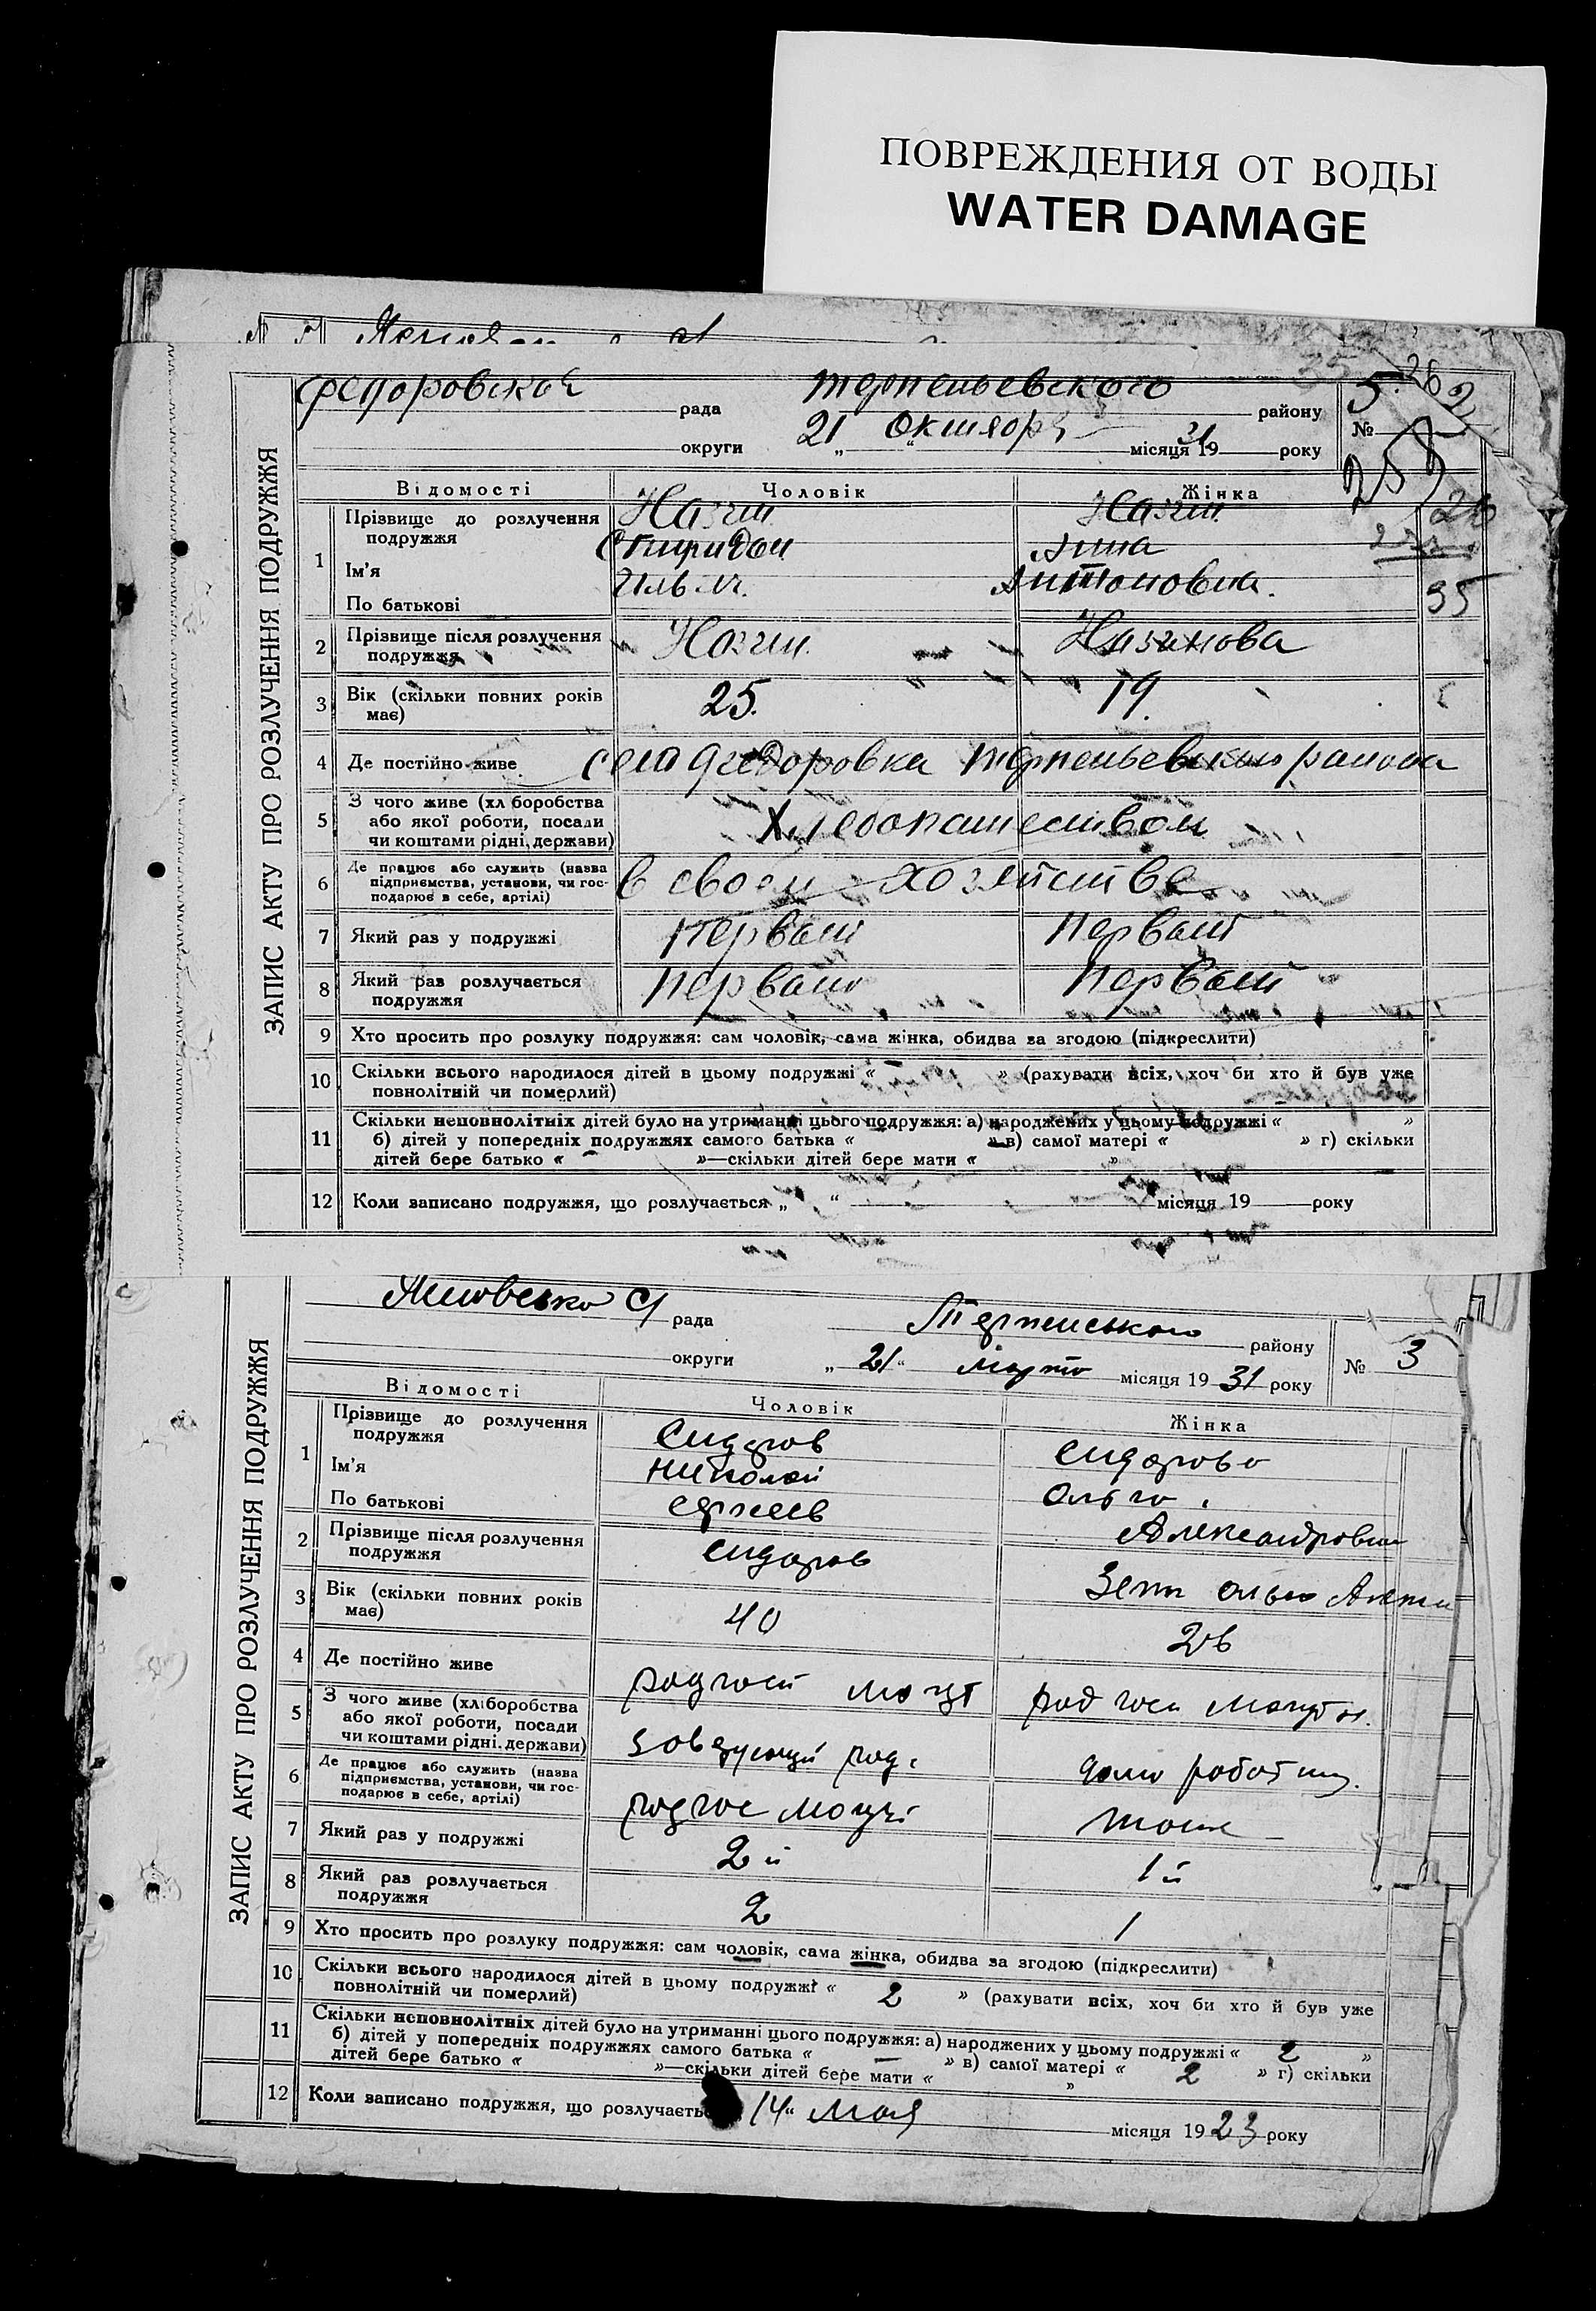 ПОВРЕЖДЕНИЯ ОТ ВОДЫ
WATER DAMAGE
ЗАПИС АКТУ ПРО РОЗЛУЧЕННЯ ПОДРУЖЖЯ
Федоровская рада Терпеньевского району № 5
округи „21“ Октября місяця 1931 року
Відомості Чоловік Жінка
1 Прізвище до розлучення подружжя
Ім'я Спиридон Анна
По батькові Антоновна.
2 Прізвище після розлучення подружжя
3 Вік (скільки повних років має) 25. 19.
4 Де постійно живе село Федоровка Терпеньевского района
5 З чого живе (хліборобства або якої роботи, посади чи коштами рідні, держави) Хлебопашеством
6 Де працює або служить (назва підприємства, установи, чи господарює в себе, артілі) в своем хозяйстве
7 Який раз у подружжі Первый Первый
8 Який раз розлучається подружжя Первый Первый
9 Хто просить про розлуку подружжя: сам чоловік, сама жінка, обидва за згодою (підкреслити)
10 Скільки всього народилося дітей в цьому подружжі « — » (рахувати всіх, хоч би хто й був уже
повнолітній чи померлий)
11 Скільки неповнолітніх дітей було на утриманні цього подружжя: а) народжених у цьому подружжі « »
б) дітей у попередніх подружжях самого батька « » в) самої матері « » г) скільки
дітей бере батько « — »—скільки дітей бере мати « »
12 Коли записано подружжя, що розлучається „ “ місяця 19 року
35
ЗАПИС АКТУ ПРО РОЗЛУЧЕННЯ ПОДРУЖЖЯ
рада району № 3
округи „21“ марта місяця 1931 року
Відомості Чоловік Жінка
1 Прізвище до розлучення подружжя Сидоров Сидорова
Ім'я Николай Ольга
По батькові Сергеев Александровна
2 Прізвище після розлучення подружжя Сидоров
3 Вік (скільки повних років має) 40 26
4 Де постійно живе
5 З чого живе (хліборобства або якої роботи, посади чи коштами рідні, держави)
6 Де працює або служить (назва підприємства, установи, чи господарює в себе, артілі)
7 Який раз у подружжі 2й 1й
8 Який раз розлучається подружжя 2 1
9 Хто просить про розлуку подружжя: сам чоловік, сама жінка, обидва за згодою (підкреслити)
10 Скільки всього народилося дітей в цьому подружжі « 2 » (рахувати всіх, хоч би хто й був уже
повнолітній чи померлий)
11 Скільки неповнолітніх дітей було на утриманні цього подружжя: а) народжених у цьому подружжі « 2 »
б) дітей у попередніх подружжях самого батька « — » в) самої матері « 2 » г) скільки
дітей бере батько « »—скільки дітей бере мати « »
12 Коли записано подружжя, що розлучається 14“ мая місяця 1923 року